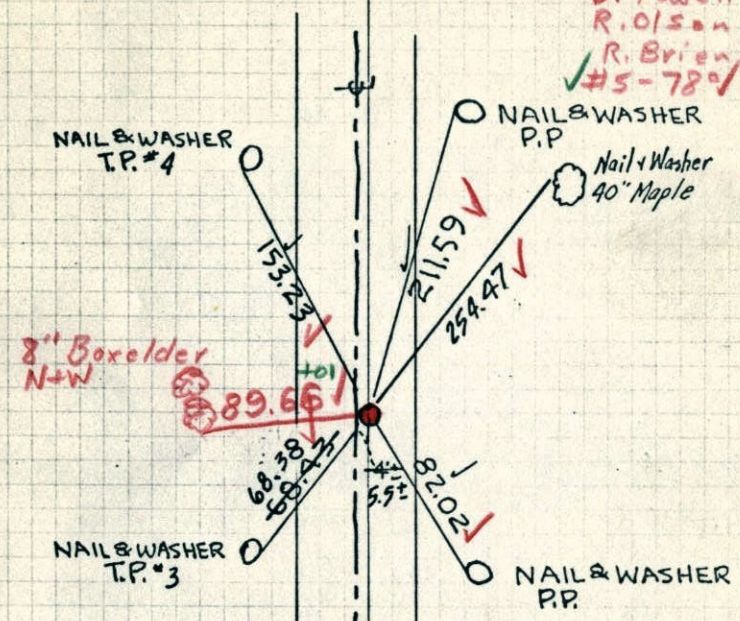 R. Olson
R. Brien
✓#5-78°✓
NAIL & WASHER
P.P
NAIL & WASHER
T.P. #4
Nail & Washer
40" Maple
153.23
211.59
254.47
8" Boxelder
N+W
+01
89.66
68.38
68.43
4±
5.5±
82.02
NAIL & WASHER
T.P. #3
NAIL & WASHER
P.P.